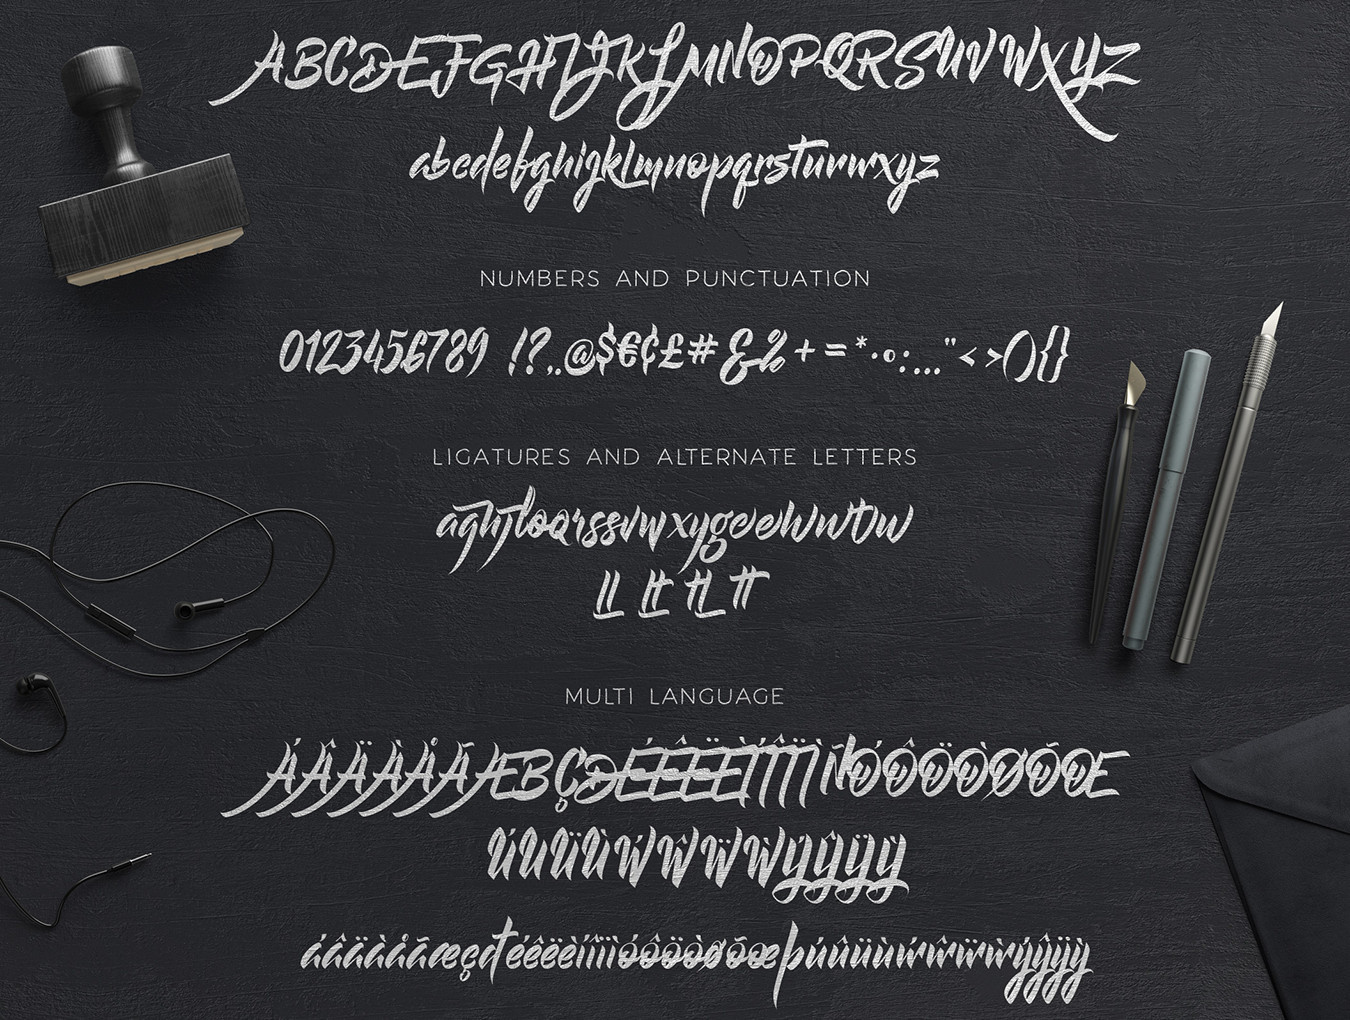 ABCDEFGHIJKLMNOPQRSTUVWXYZ
abcdefghijklmnopqrstuvwxyz
NUMBERS AND PUNCTUATION
0123456789 !?,.@$€¢£#&%+=*·°:;..."<>(){}
LIGATURES AND ALTERNATE LETTERS
ll lt tl tt
MULTI LANGUAGE
ÁÂÄÀÅÃÆBÇÐÉÊËÈÍÎÏÌÑÓÔÖÒØÕŒ
ÚÛÜÙẂŴẄẀÝŶŸỲ
áâäàåãæçđéêëèíîïìóôöòøõœþúûüùẃŵẅẁýŷÿỳ